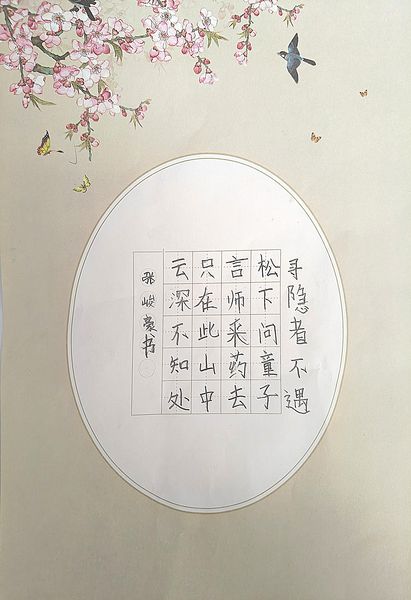 寻隐者不遇
松下问童子
言师采药去
只在此山中
云深不知处
峻豪书